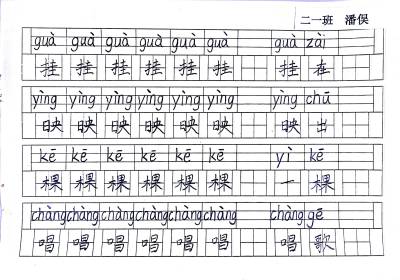 二一班 潘俣
guà guà guà guà guà guà guà zài
挂 挂 挂 挂 挂 挂 挂 在
yìng yìng yìng yìng yìng yìng yìng chū
映 映 映 映 映 映 映 出
kē kē kē kē kē kē yì kē
棵 棵 棵 棵 棵 棵 一 棵
chàng chàng chàng chàng chàng chàng chàng gē
唱 唱 唱 唱 唱 唱 唱 歌